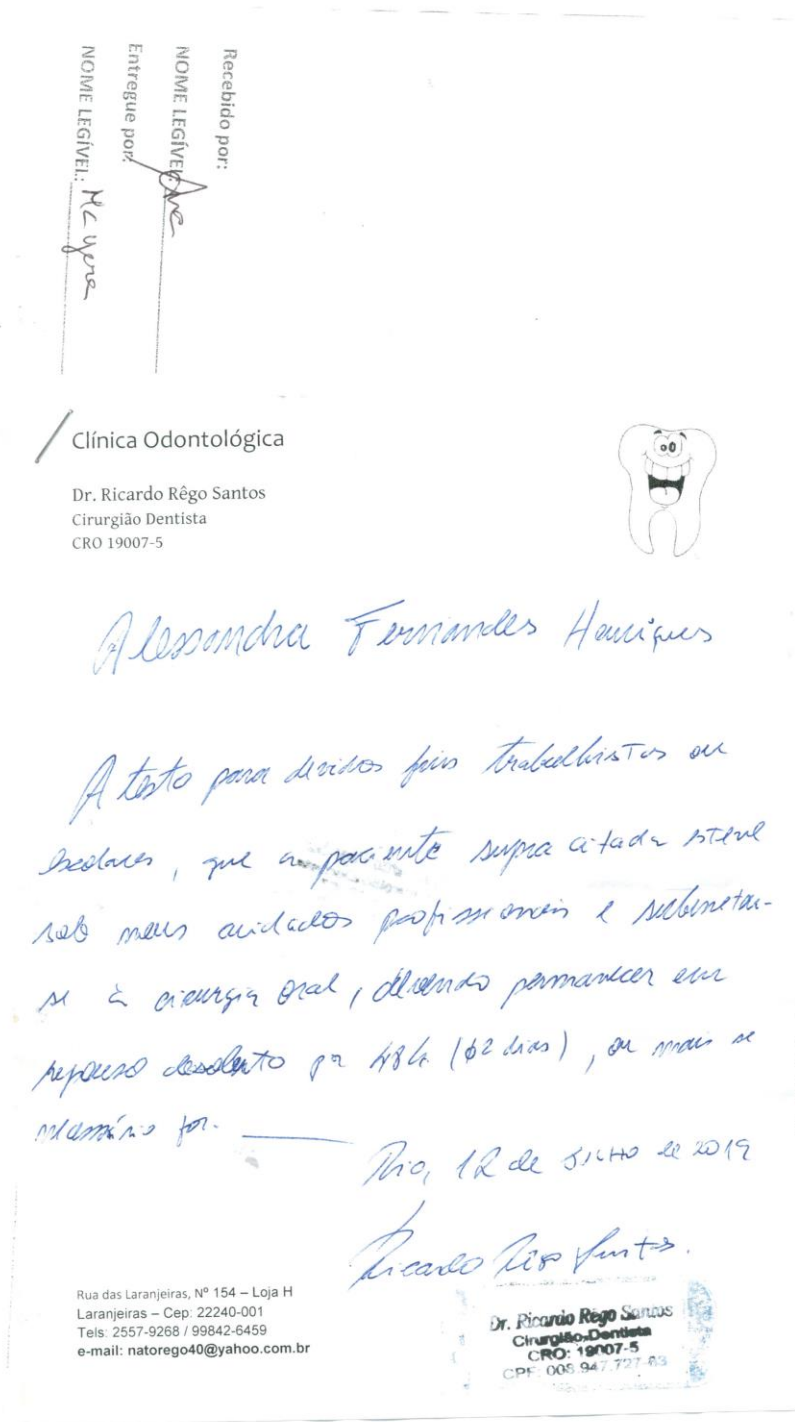 Recebido por:
NOME LEGÍVEL:
Entregue por:
NOME LEGÍVEL: Mayara
Clínica Odontológica
Dr. Ricardo Rêgo Santos
Cirurgião Dentista
CRO 19007-5
Alessandra Fernandes Henriques
Atesto para devidos fins trabalhistas ou
escolares, que a paciente supra citada esteve
sob meus cuidados profissionais e submeteu-
se à cirurgia oral, devendo permanecer em
repouso absoluto por 48h (02 dias), ou mais se
necessário for.
Rio, 12 de de 2019
Ricardo Rêgo Santos.
Rua das Laranjeiras, Nº 154 – Loja H
Laranjeiras – Cep: 22240-001
Tels: 2557-9268 / 99842-6459
e-mail: natorego40@yahoo.com.br
Dr. Ricardo Rêgo Santos
Cirurgião-Dentista
CRO: 19007-5
CPF: 008.947.727-63